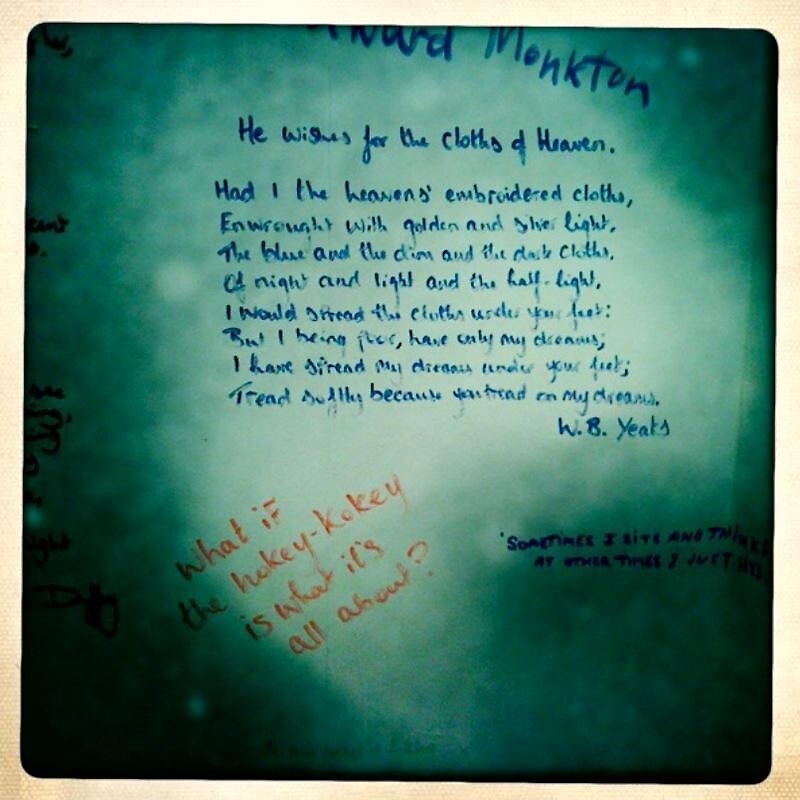 Monkton
He wishes for the cloths of Heaven.
Had I the heavens' embroidered cloths,
Enwrought with golden and silver light,
The blue and the dim and the dark cloths.
Of night and light and the half-light,
I would spread the cloths under your feet:
But I being poor, have only my dreams;
I have spread my dreams under your feet;
Tread softly because you tread on my dreams.
W.B. Yeats
What if
the hokey-kokey
is what it's
all about?
'SOMETIMES I SITS AND THINKS
AT OTHER TIMES I JUST SITS